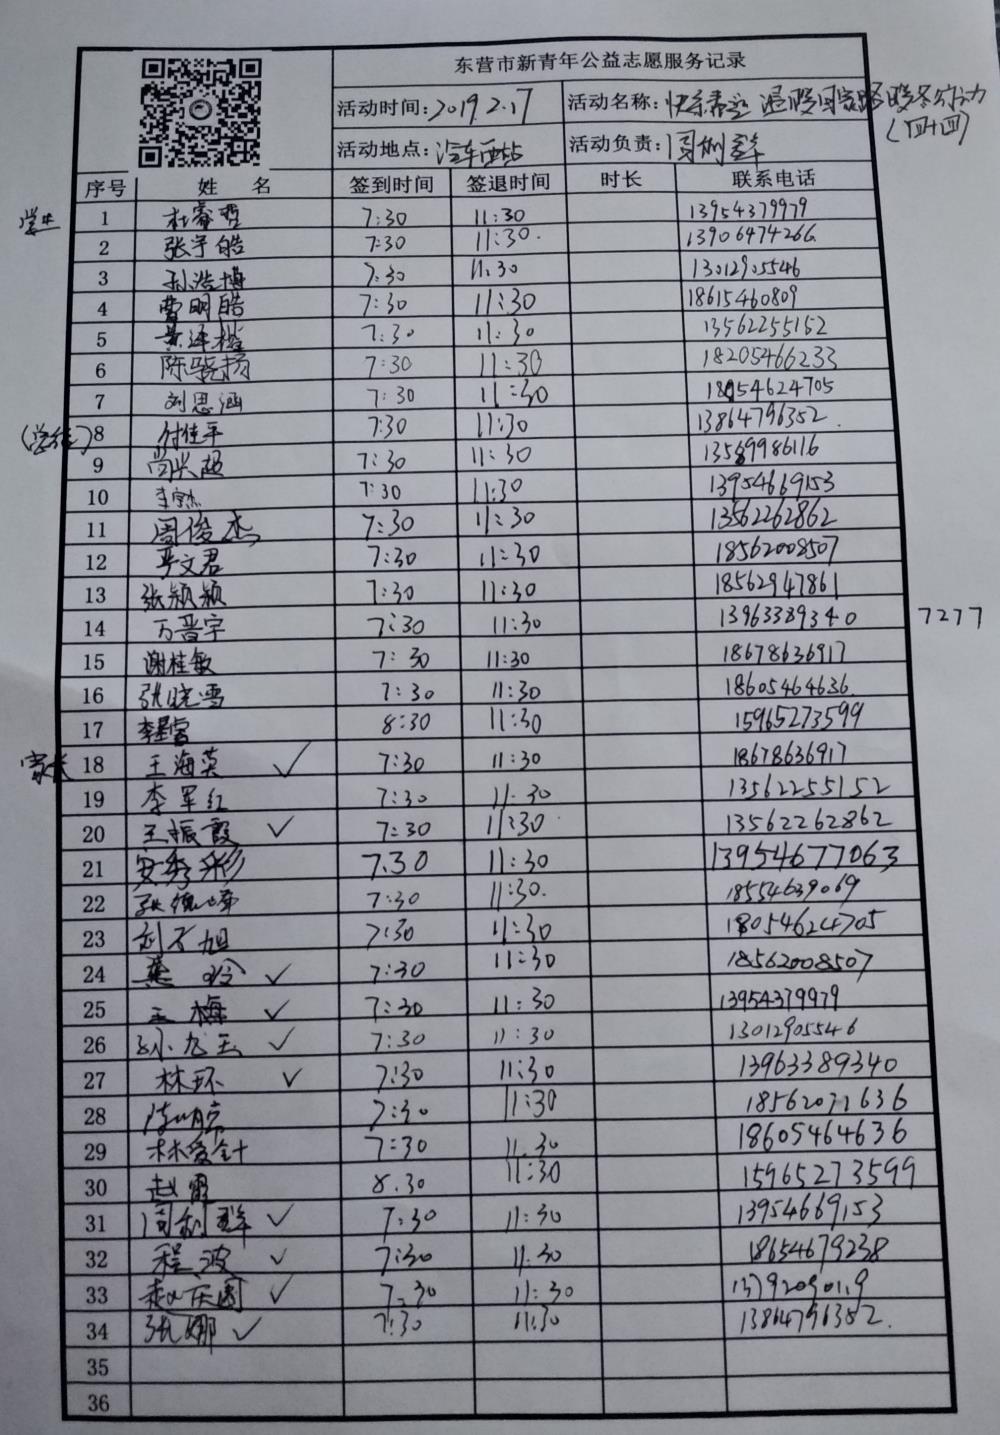 东营市新青年公益志愿服务记录
活动时间: 2019.2.17 活动名称: 快乐 温暖回家路 暖冬行动
(四十四)
活动地点: 汽车西站 活动负责: 周利群
序号 姓 名 签到时间 签退时间 时长 联系电话
学生 1 杜睿哲 7:30 11:30 13954379979
2 张宇皓 7:30 11:30. 13906474266
3 孙浩博 7:30 11:30 13012905546
4 曹明皓 7:30 11:30 18615460809
5 7:30 11:30 13562255152
6 陈骁扬 7:30 11:30 18205466233
7 刘思涵 7:30 11:30 18054624705
8 付佳平 7:30 11:30 13864796352.
9 尚兴超 7:30 11:30 13589986116
10 7:30 11:30 13954669153
11 周俊杰 7:30 11:30 13562262862
12 文君 7:30 11:30 18562008507
13 张颖颖 7:30 11:30 18562947861
14 万晋宇 7:30 11:30 13963389340 7277
15 谢桂敏 7:30 11:30 18678636917
16 张晓雪 7:30 11:30 18605464636.
17 李星 8:30 11:30 15965273599
家长 18 王海英 ✓ 7:30 11:30 18678636917
19 李军红 7:30 11:30 13562255152
20 王振霞 ✓ 7:30 11:30 13562262862
21 安秀彩 7.30 11:30 13954677063
22 张德峰 7:30 11:30. 18554639069
23 刘不旭 7:30 11:30 18054624705
24 燕玲 ✓ 7:30 11:30 18562008507
25 王梅 ✓ 7:30 11:30 13954379979
26 孙 玉 ✓ 7:30 11:30 13012905546
27 林环 ✓ 7:30 11:30 13963389340
28 陈 7:30 11:30 18562071636
29 林爱针 7:30 11.30 18605464636
30 赵霞 8.30 11:30 15965273599
31 周利群 ✓ 7:30 11:30 13954669153
32 程波 ✓ 7:30 11:30 18654679238
33 赵庆国 ✓ 7:30 11:30
34 张娜 ✓ 7:30 11:30 13864796352.
35
36